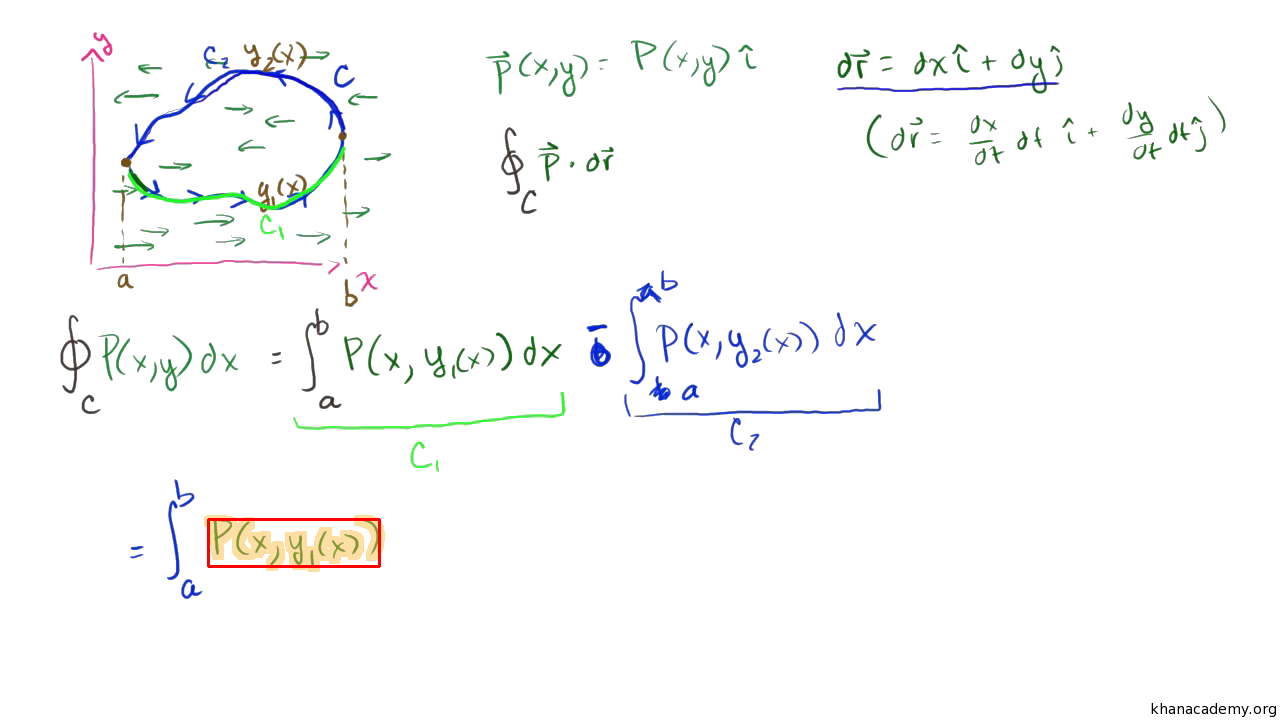 y
C₂ y₂(x)
C
y₁(x)
C₁
a
b
x
p⃗(x,y) = P(x,y) î
dr⃗ = dx î + dy ĵ
(dr⃗ = dx/dt dt î + dy/dt dt ĵ)
∮_C p⃗ · dr⃗
∮_C P(x,y) dx = ∫_a^b P(x, y₁(x)) dx - ∫_a^b P(x, y₂(x)) dx
C₁
C₂
= ∫_a^b P(x, y₁(x))
khanacademy.org